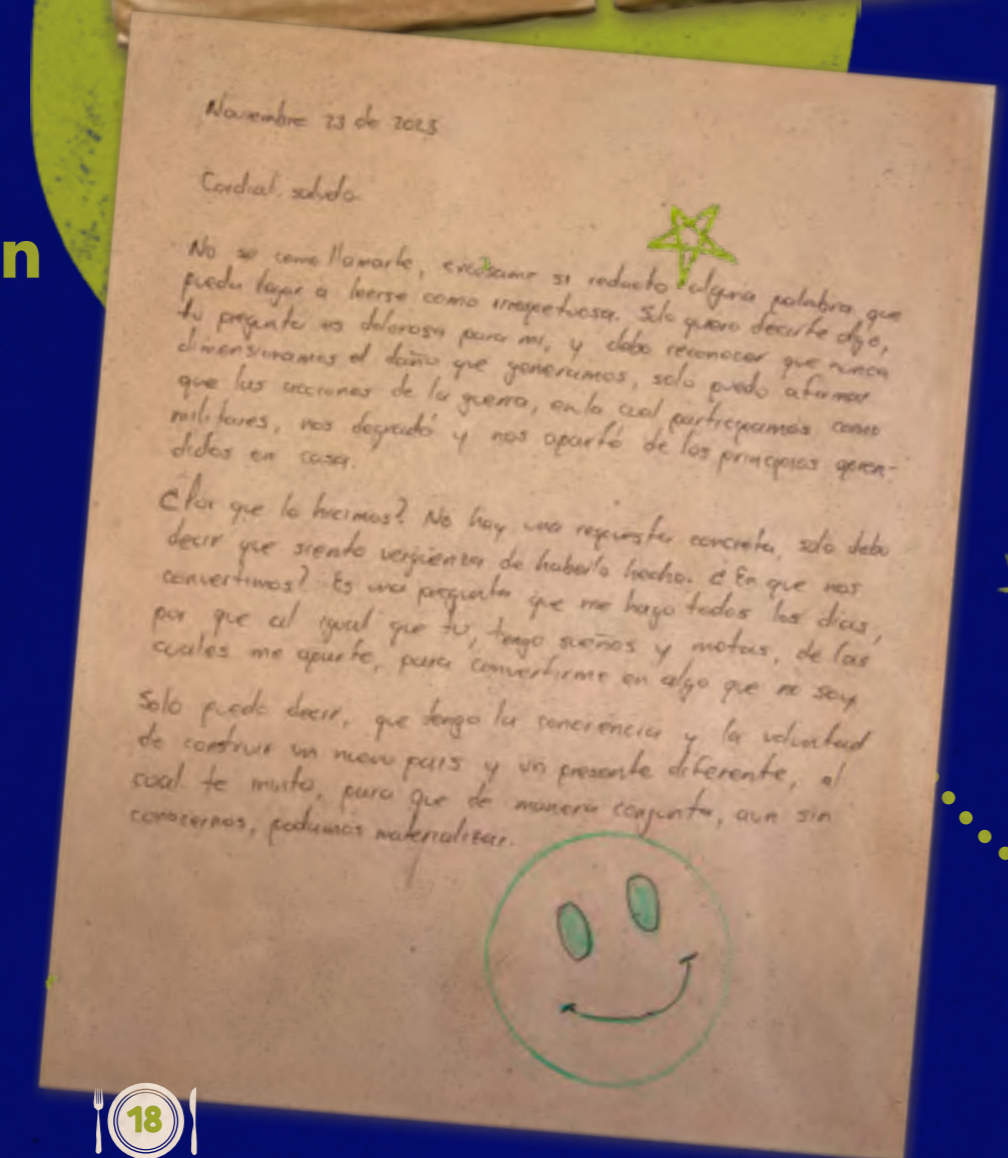 Noviembre 23 de 2023
Cordial saludo
n
No se como llamarte, excúsame si redacto alguna palabra que
pueda llegar a leerse como irrespetuosa. Solo quiero decirte algo,
tu pregunta es dolorosa para mi, y debo reconocer que nunca
dimensionamos el daño que generamos, solo puedo afirmar
que las acciones de la guerra, en la cual participamos como
militares, nos degradó y nos apartó de los principios
en casa.
¿Por que lo hicimos? No hay una respuesta concreta, solo debo
decir que siento vergüenza de haberlo hecho. ¿En que nos
convertimos? Es una pregunta que me hago todos los dias,
por que al igual que tu, tengo sueños y metas, de las
cuales me aparte, para convertirme en algo que no soy.
Solo puedo decir, que tengo la conciencia y la voluntad
de construir un nuevo pais y un presente diferente, al
cual te invito, para que de manera conjunta, aun sin
conocernos, podamos materializar.
18